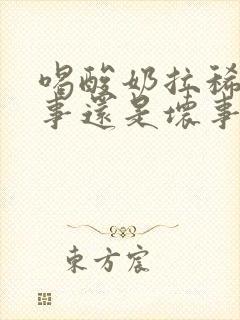 喝酸奶拉稀
事還是壞事
東方宸